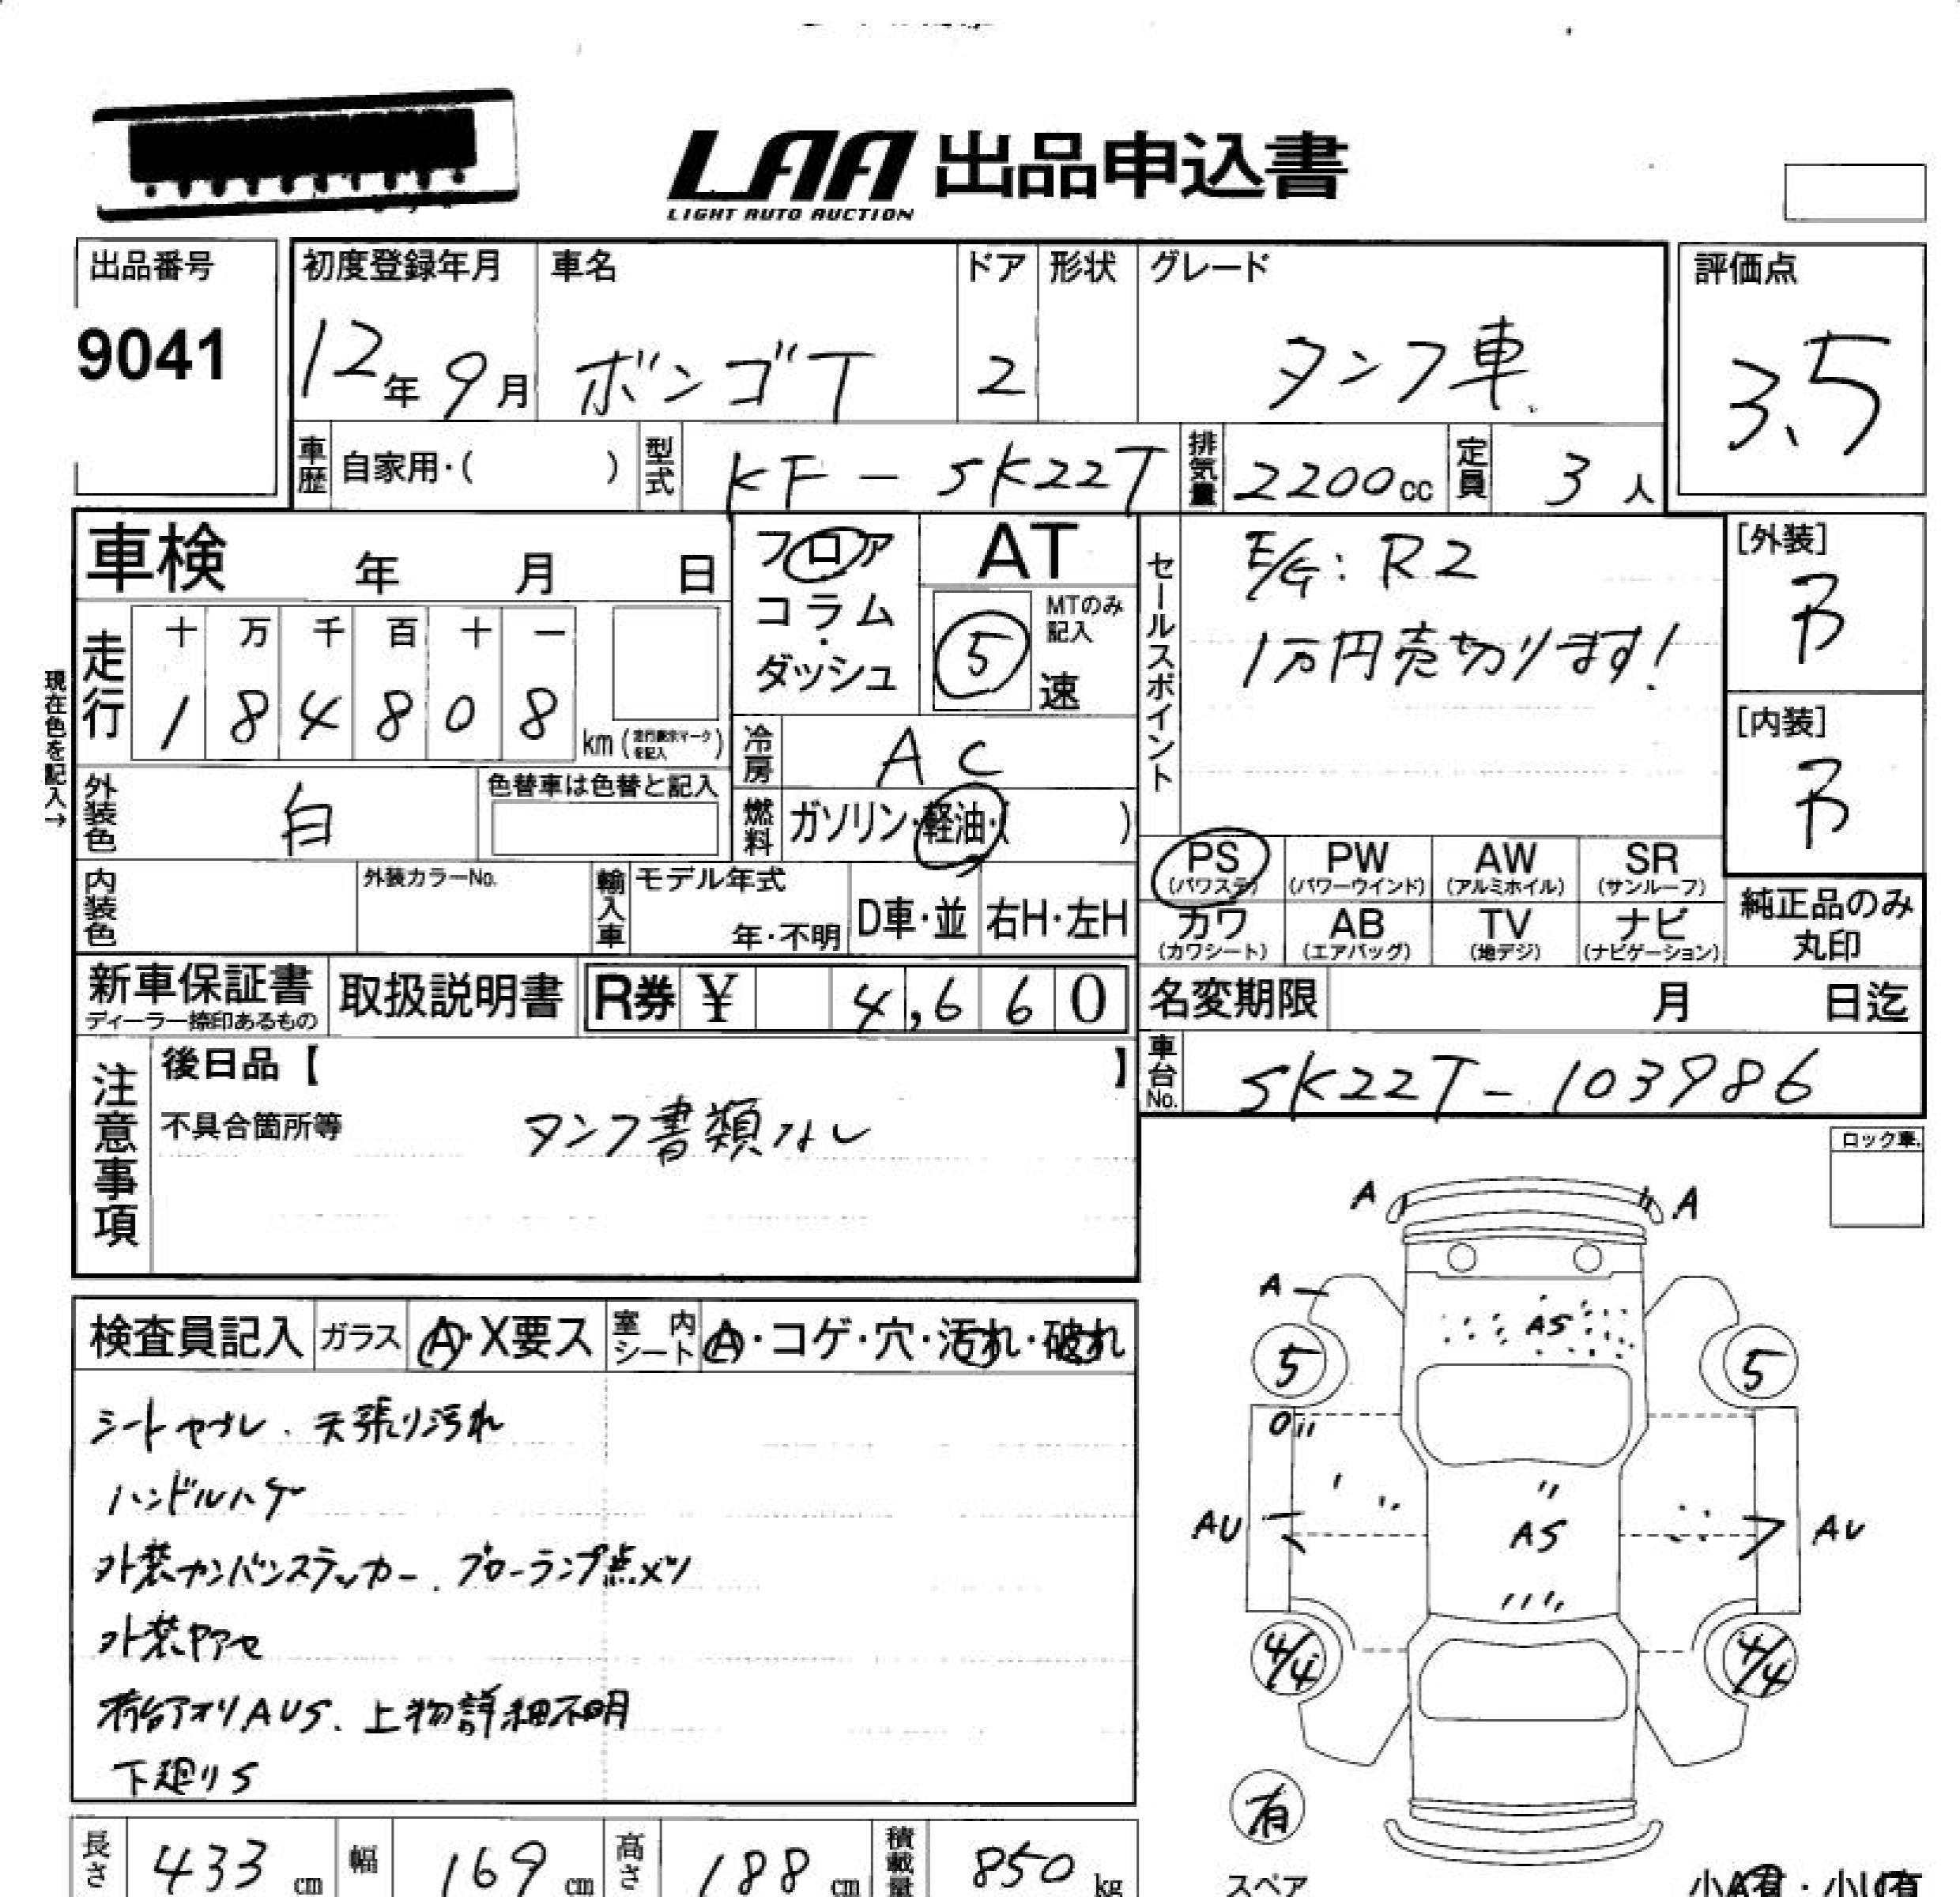 LAA 出品申込書
LIGHT AUTO AUCTION
出品番号
9041
初度登録年月
12年9月
車名
ボンゴT
ドア
2
形状
グレード
タンク車
評価点
3.5
車歴 自家用・( )
型式 KF-SK22T
排気量 2200cc
定員 3人
車検 年 月 日
現在色を記入→
走行
十 万 千 百 十 一
1 8 4 8 0 8
km (走行表示マークを記入)
フロア
コラム
・
ダッシュ
AT
5
MTのみ記入
速
冷房 AC
外装色 白
色替車は色替と記入
燃料 ガソリン・軽油・( )
内装色
外装カラーNo.
輸入車
モデル年式
年・不明
D車・並
右H・左H
セールスポイント
E/G: R2
1万円売切ります!
[外装]
B
[内装]
B
PS (パワステ)
PW (パワーウインド)
AW (アルミホイル)
SR (サンルーフ)
カワ (カワシート)
AB (エアバッグ)
TV (地デジ)
ナビ (ナビゲーション)
純正品のみ
丸印
新車保証書
ディーラー捺印あるもの
取扱説明書
R券 ¥ 4,660
名変期限 月 日迄
車台No. SK22T-103986
注意事項
後日品【 】
不具合箇所等
タンク書類ナシ
ロック車
検査員記入
ガラス A・X要ス
室内シート A・コゲ・穴・汚れ・破れ
シートヤブレ、天張り汚れ
ハンドルハゲ
外装カンバンステッカー、ブローランプ点メツ
外装ヤアセ
荷台アオリAUS、上物詳細不明
下廻りS
A
A
A
AS
5
5
AU
AS
AU
4/4
4/4
有
スペア
小A有・小U有
長さ 433 cm
幅 169 cm
高さ 188 cm
積載量 850 kg